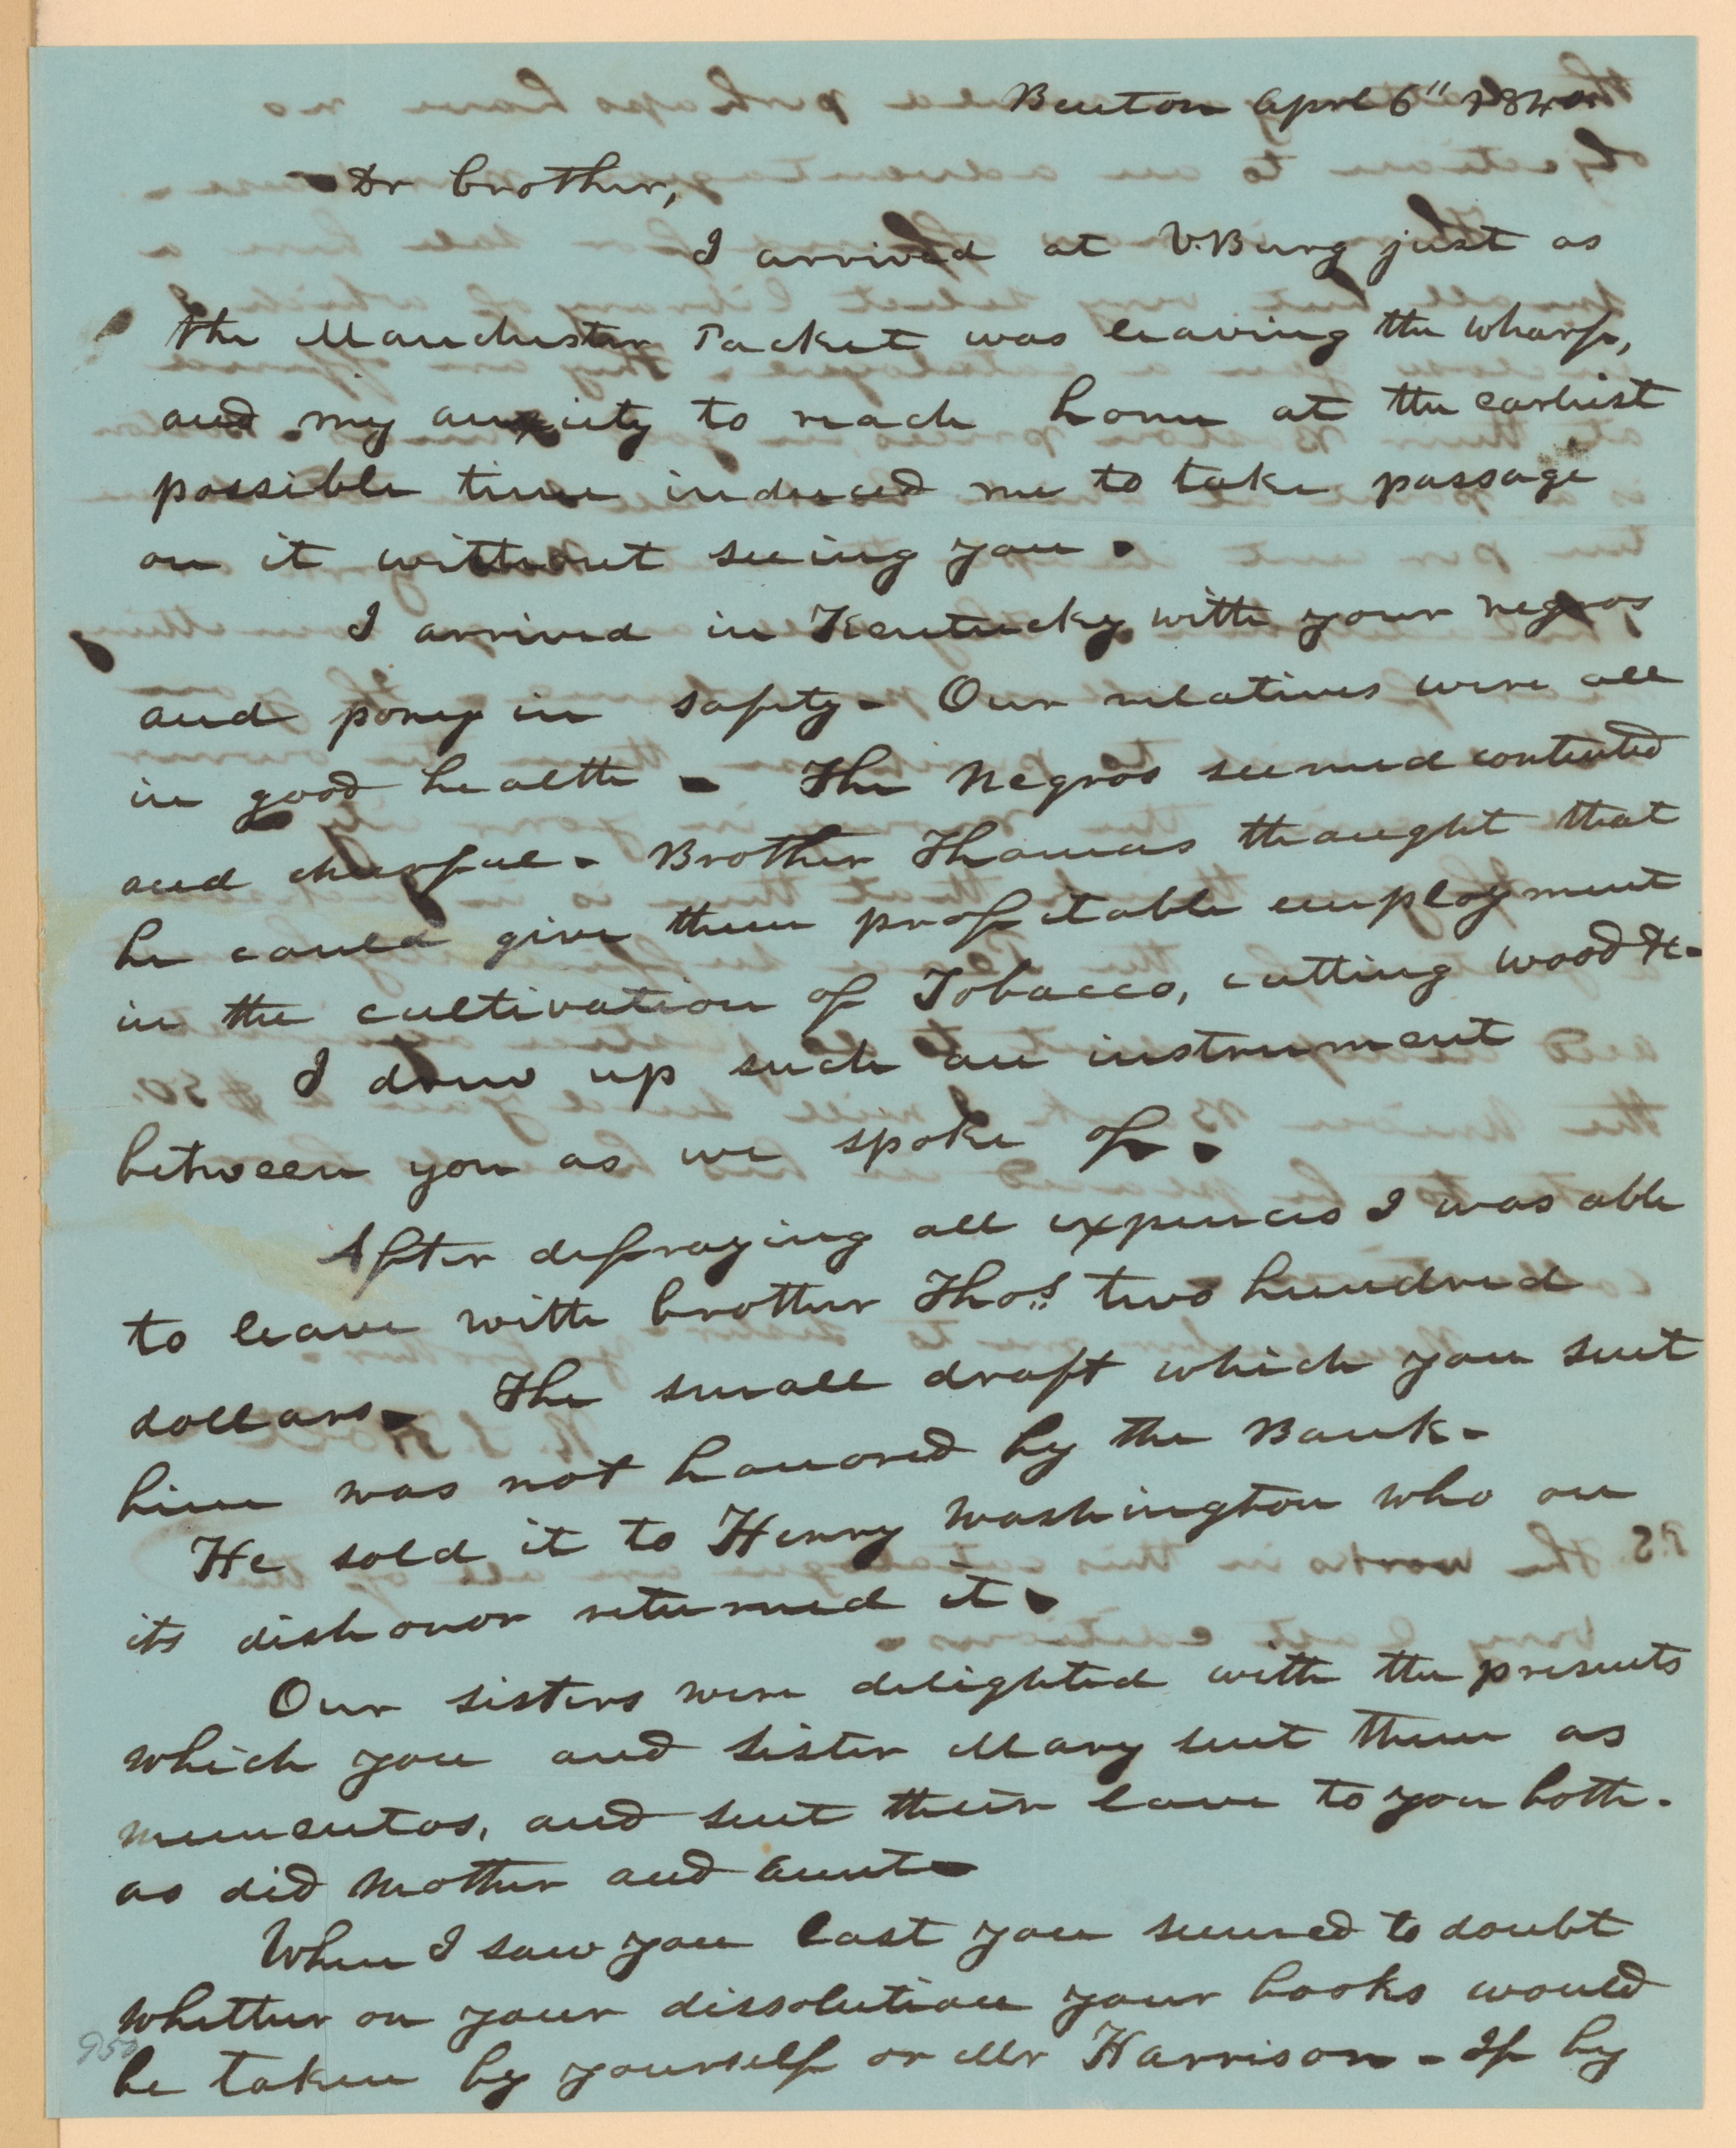 Benton April 6" 184
Dr brother,
I arrived at V.Burg just as
the Manchester Packet was leaving the wharf,
and my anxiety to reach home at the earliest
possible time induced me to take passage
on it without seeing you.
I arrived in Kentucky with your negros
and pony in safety. Our relatives were all
in good health. The Negros seemed contented
and cheerful. Brother Thomas thought that
he could give them profitable employment
in the cultivation of Tobacco, cutting wood &c.
I drew up such an instrument
between you as we spoke of.
After defraying all expences I was able
to leave with brother Thos. two hundred
dollars. The small draft which you sent
him was not honored by the Bank.
He sold it to Henry Washington who on
its dishonor returned it.
Our sisters were delighted with the presents
which you and sister Mary sent them as
mementos, and sent their love to you both.
as did Mother and Aunt.
When I saw you last you seemed to doubt
whether on your dissolution your books would
be taken by yourself or Mr Harrison. If by